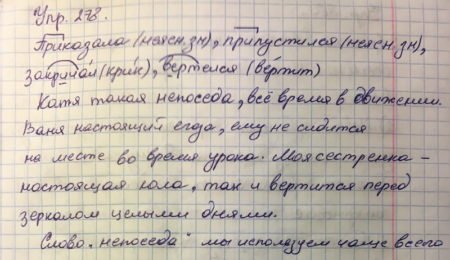 Упр. 278.
Приказала (неясн. зн), припустился (неясн. зн),
Закричал (крик), вертелся (вертит)
Катя такая непоседа, всё время в движении.
Ваня настоящий егоза, ему не сидится
на месте во время урока. Моя сестренка -
настоящая юла, так и вертится перед
зеркалом целыми днями.
Слово "непоседа" мы используем чаще всего